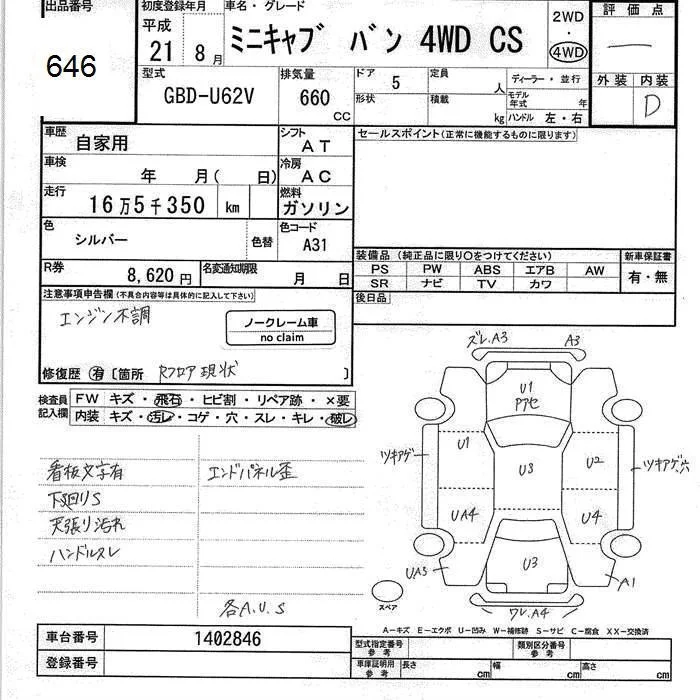 出品番号
646
初度登録年月
平成
21 8月
車名・グレード
ミニキャブ バン 4WD CS
2WD
・
4WD
評価点
―
外装 内装
D
型式
GBD-U62V
排気量
660
CC
ドア 5
形状
定員 人
積載 kg
ディーラー・並行
モデル年式 年
ハンドル 左・右
車歴
自家用
シフト
AT
車検
年 月( 日)
冷房
AC
走行
16万5千350 km
燃料
ガソリン
色
シルバー
色替
色コード
A31
R券
8,620円
名変通知期限
月 日
セールスポイント(正常に機能するものに限ります)
装備品 (純正品に限り○をつけてください)
PS PW ABS エアB AW
SR ナビ TV カワ
新車保証書
有・無
後日品
注意事項申告欄(不具合内容等は具体的に記入して下さい)
エンジン不調
ノークレーム車
no claim
修復歴 有 〔箇所 Rフロア現状 〕
検査員記入欄
FW キズ・飛石・ヒビ割・リペア跡・×要
内装 キズ・汚レ・コゲ・穴・スレ・キレ・破レ
看板文字有
エンドパネル歪
下廻りS
天張り汚れ
ハンドルスレ
各A.U.S
ズレ.A3
A3
U1
Pアセ
U1
U3
U2
ツキアゲ
ツキアゲ.穴
UA4
U4
UA3
U3
A1
ワレ.A4
スペア
A―キズ E―エクボ U―凹み W―補修跡 S―サビ C―腐食 XX―交換済
車台番号
1402846
登録番号
型式指定番号
参考
類別区分番号
参考
車庫証明用
参考
長さ cm
幅 cm
高さ cm